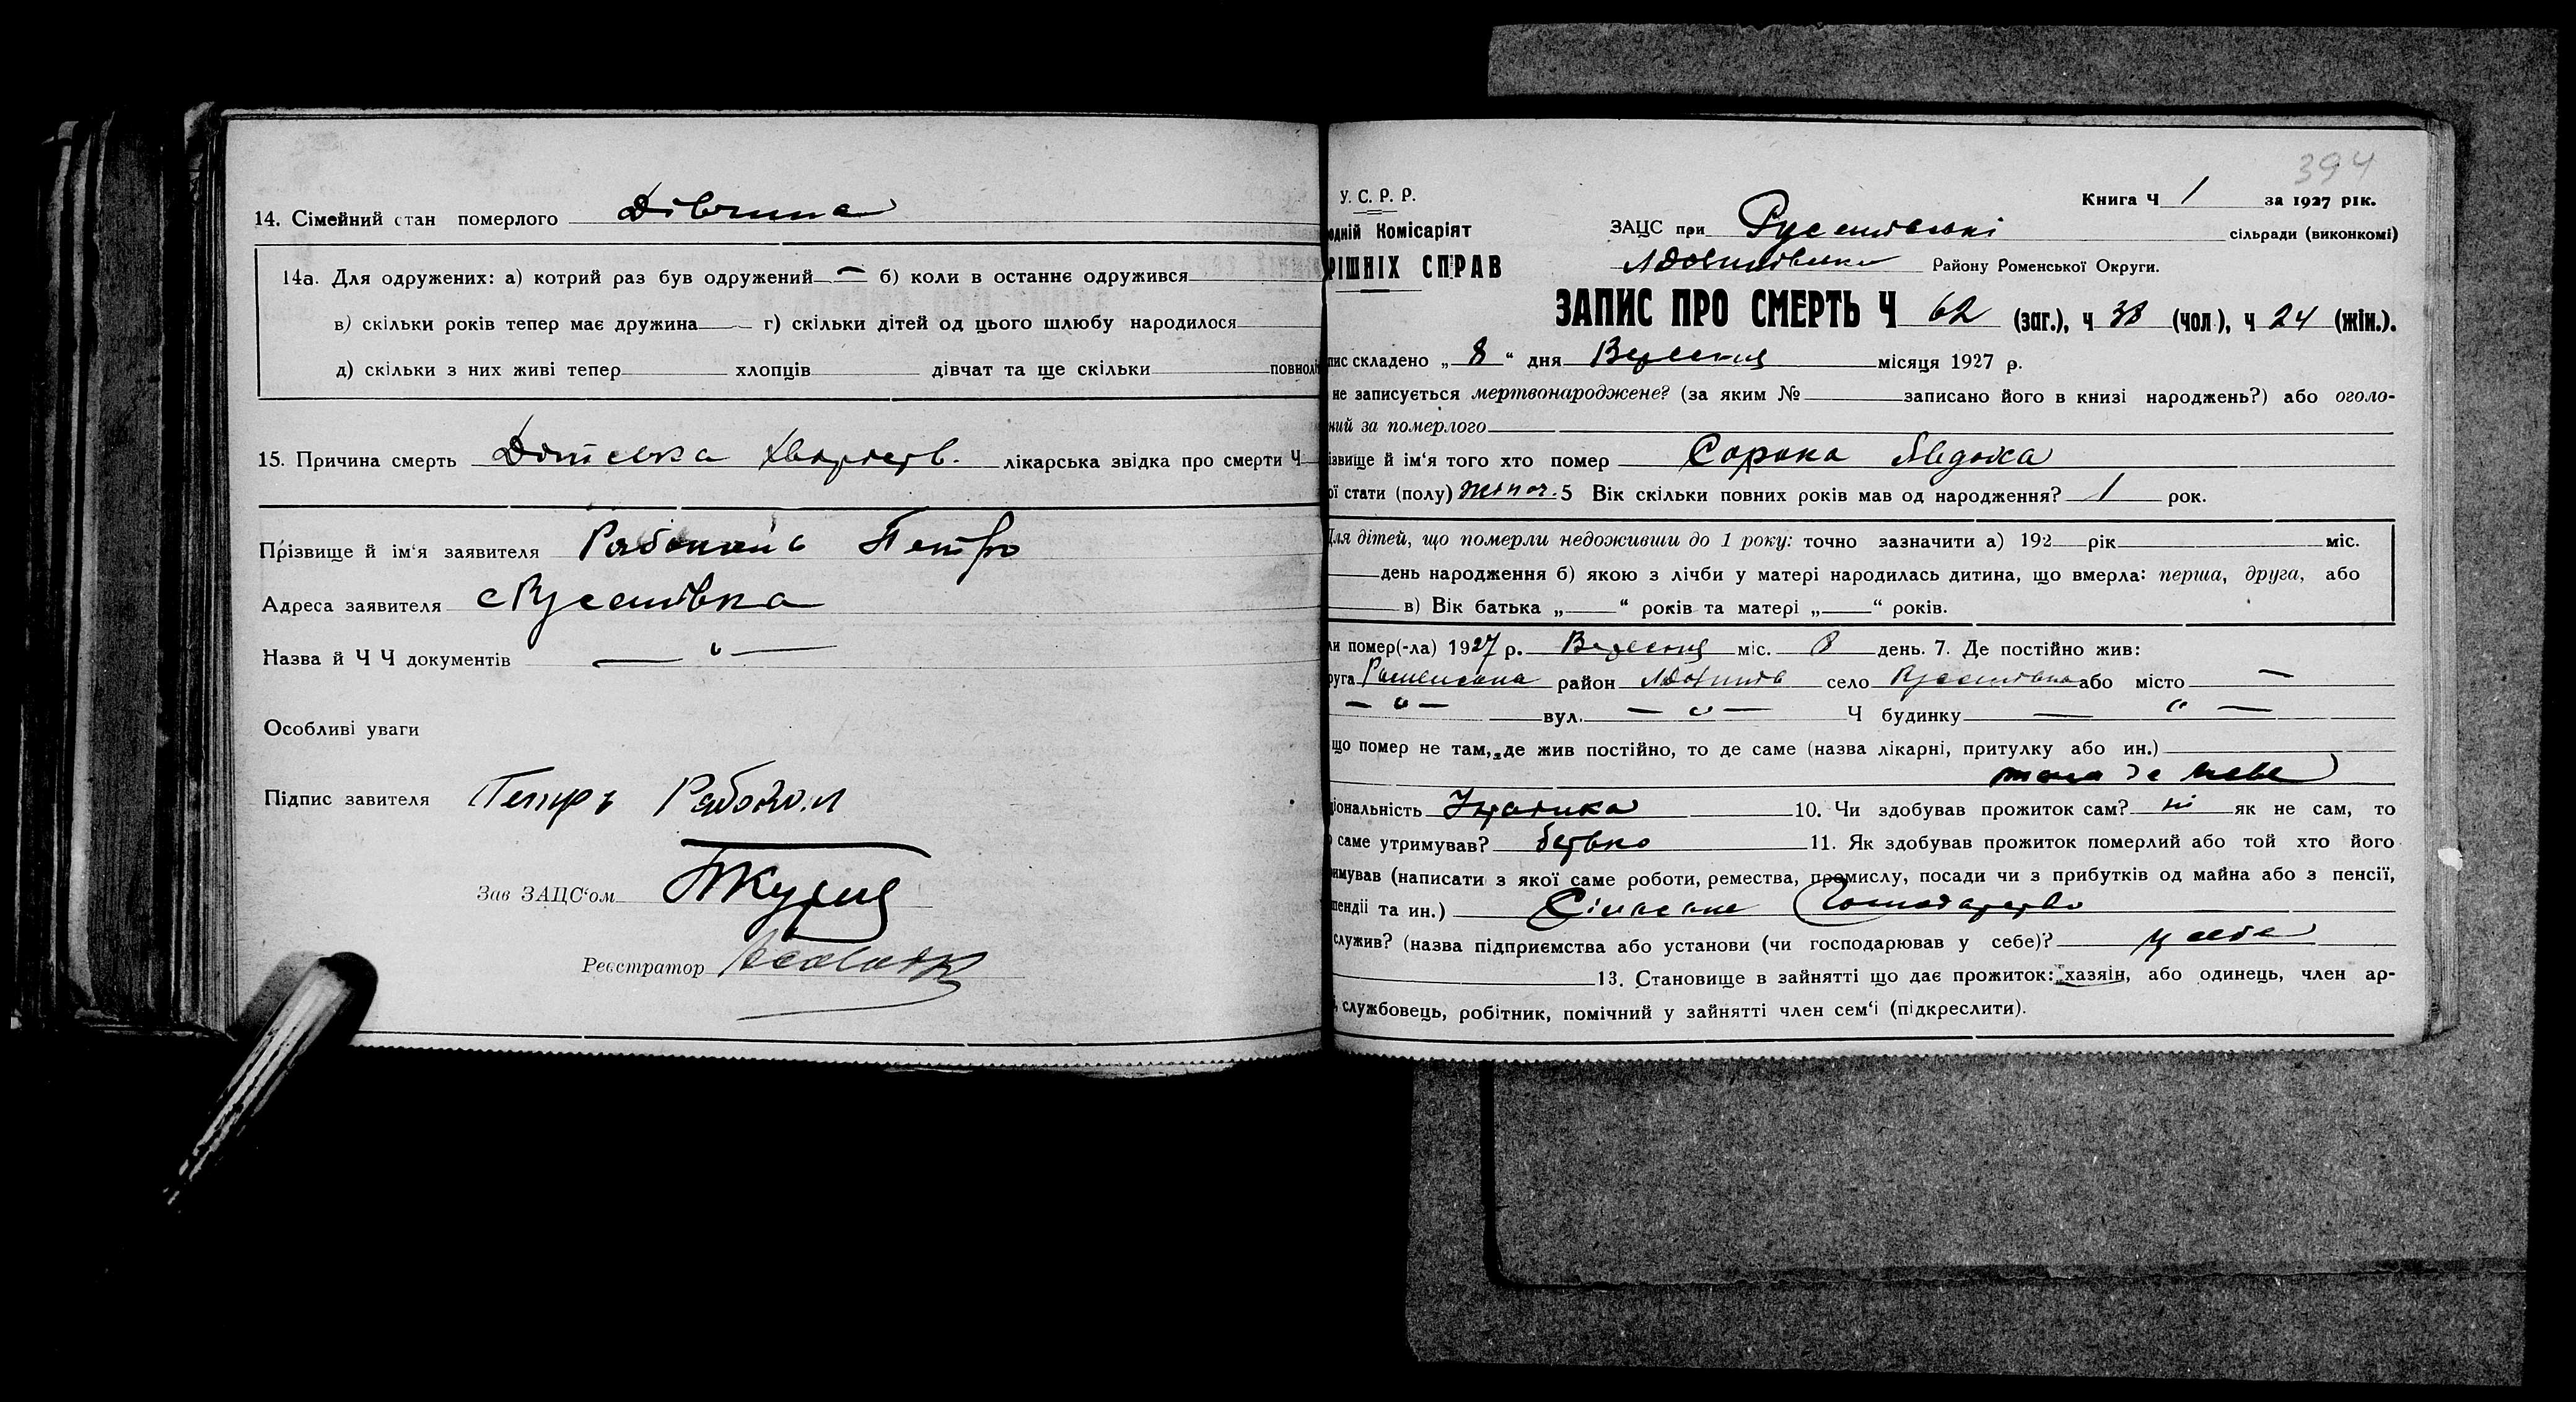 14. Сімейний стан померлого Дівчина
14а. Для одружених: а) котрий раз був одружений — б) коли в останнє одружився
в) скільки років тепер має дружина — г) скільки дітей од цього шлюбу народилося
д) скільки з них живі тепер хлопців дівчат та ще скільки повноліт
15. Причина смерть Дітська лікарська звідка про смерти Ч
Прізвище й ім'я заявителя Петро
Адреса заявителя с Русанівка
Назва й Ч Ч документів — " —
Особливі уваги
Підпис завителя Петр
Зав ЗАЦС'ом
Реєстратор
394
У. С. Р. Р.
одній Комісаріят
РІШНІХ СПРАВ
Книга Ч 1 за 1927 рік.
ЗАЦС при Русанівські сільради (виконкомі)
Району Роменської Округи.
ЗАПИС ПРО СМЕРТЬ Ч 62 (заг.), ч 38 (чол), ч 24 (жін.).
пис складено „ 8 " дня Вересня місяця 1927 р.
не записується мертвонароджене? (за яким № записано його в книзі народжень?) або оголо-
ний за померлого
ізвище й ім'я того хто помер Сорока Явдоха
ої стати (полу) жіноч. 5 Вік скільки повних років мав од народження? 1 рок.
Для дітей, що померли недоживши до 1 року: точно зазначити а) 192 рік міс.
день народження б) якою з лічби у матері народилась дитина, що вмерла: перша, друга, або
в) Вік батька „ — " років та матері „ — " років.
ли помер(-ла) 1927 р. Вересня міс. 8 день. 7. Де постійно жив:
руга Роменська район село Русанівка або місто —
— " — вул. — " — Ч будинку — " —
що помер не там, де жив постійно, то де саме (назва лікарні, притулку або ин.)
там де живе
іональність Українка 10. Чи здобував прожиток сам? ні як не сам, то
о саме утримував? батько 11. Як здобував прожиток померлий або той хто його
имував (написати з якої саме роботи, ремества, промислу, посади чи з прибутків од майна або з пенсії,
пендії та ин.) Сільське Господарство
служив? (назва підприємства або установи (чи господарював у себе)? у себе
13. Становище в зайнятті що дає прожиток: хазяін, або одинець, член ар-
і, службовець, робітник, помічний у зайнятті член сем'і (підкреслити).